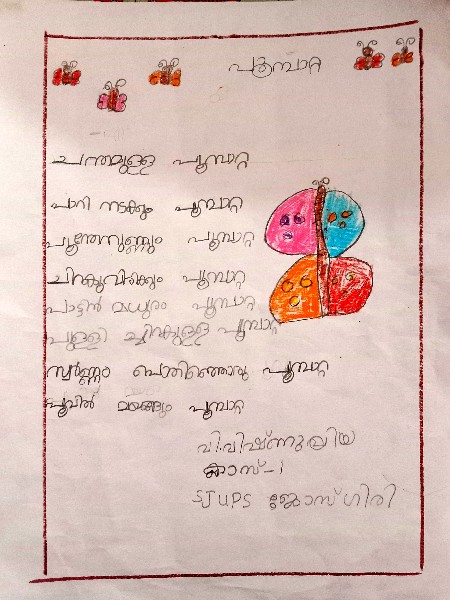 പൂമ്പാറ്റ
ചന്തമുള്ള പൂമ്പാറ്റ
പാറി നടക്കും പൂമ്പാറ്റ
പൂന്തേനുണ്ണും പൂമ്പാറ്റ
ചിറകുവിരിക്കും പൂമ്പാറ്റ
പാട്ടിൻ മധുരം പൂമ്പാറ്റ
പുള്ളി ച്ചിറകുള്ള പൂമ്പാറ്റ
സ്വർണ്ണം പൊതിഞ്ഞൊരു പൂമ്പാറ്റ
പൂവിൽ മയങ്ങും പൂമ്പാറ്റ
വി.വിഷ്ണുപ്രിയ
ക്ലാസ്-1
SJUPS ജോസ്ഗിരി